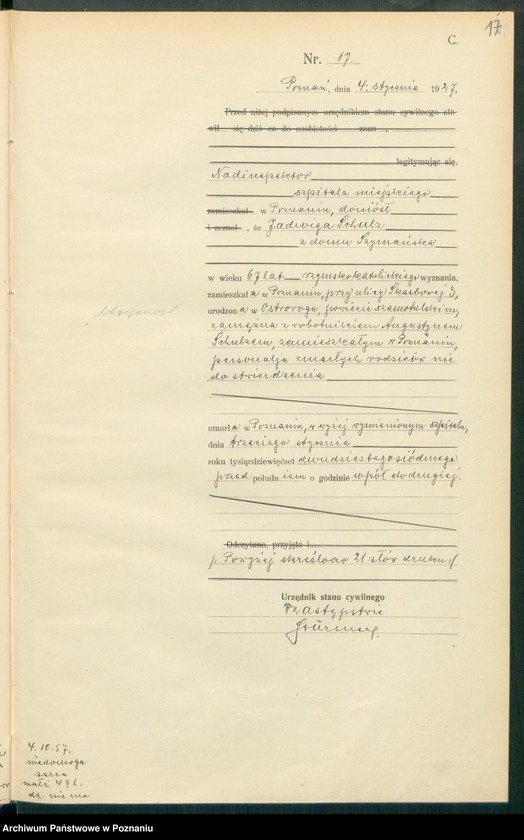 17.
C.
Nr. 17.
Poznań, dnia 4. stycznia 1927.
Przed niżej podpisanym urzędnikiem stanu cywilnego sta-
wił się dziś co do osobistości znan ,
legitymując się,
Nadinspektor
szpitala miejskiego
zamieszkał w Poznaniu, doniósł
i zeznał , że Jadwiga Schulz
z domu Szymańska
w wieku 67 lat rzymsko katolickiego wyznania,
zamieszkała w Poznaniu, przy ulicy Skarbowej 3,
urodzona w Ostrorogu, powiecie szamotulskim,
zamężna z robotnikiem Augustynem
Schulzem, zamieszkałym w Poznaniu,
personalja zmarłych rodziców nie
do stwierdzenia
umarła w Poznaniu, w wyżej wymienionym szpitalu,
dnia trzeciego stycznia
roku tysiącdziewięćset dwudziestegosiódmego
przed południem o godzinie wpół do drugiej.
Odczytano, przyjęto i
/. Powyżej skreślono 21 słów druku /.
Urzędnik stanu cywilnego
W zastępstwie
Stürmer.
4.10.57.
niedomoga
serca
małż 49 l.
dz. nie ma
Archiwum Państwowe w Poznaniu